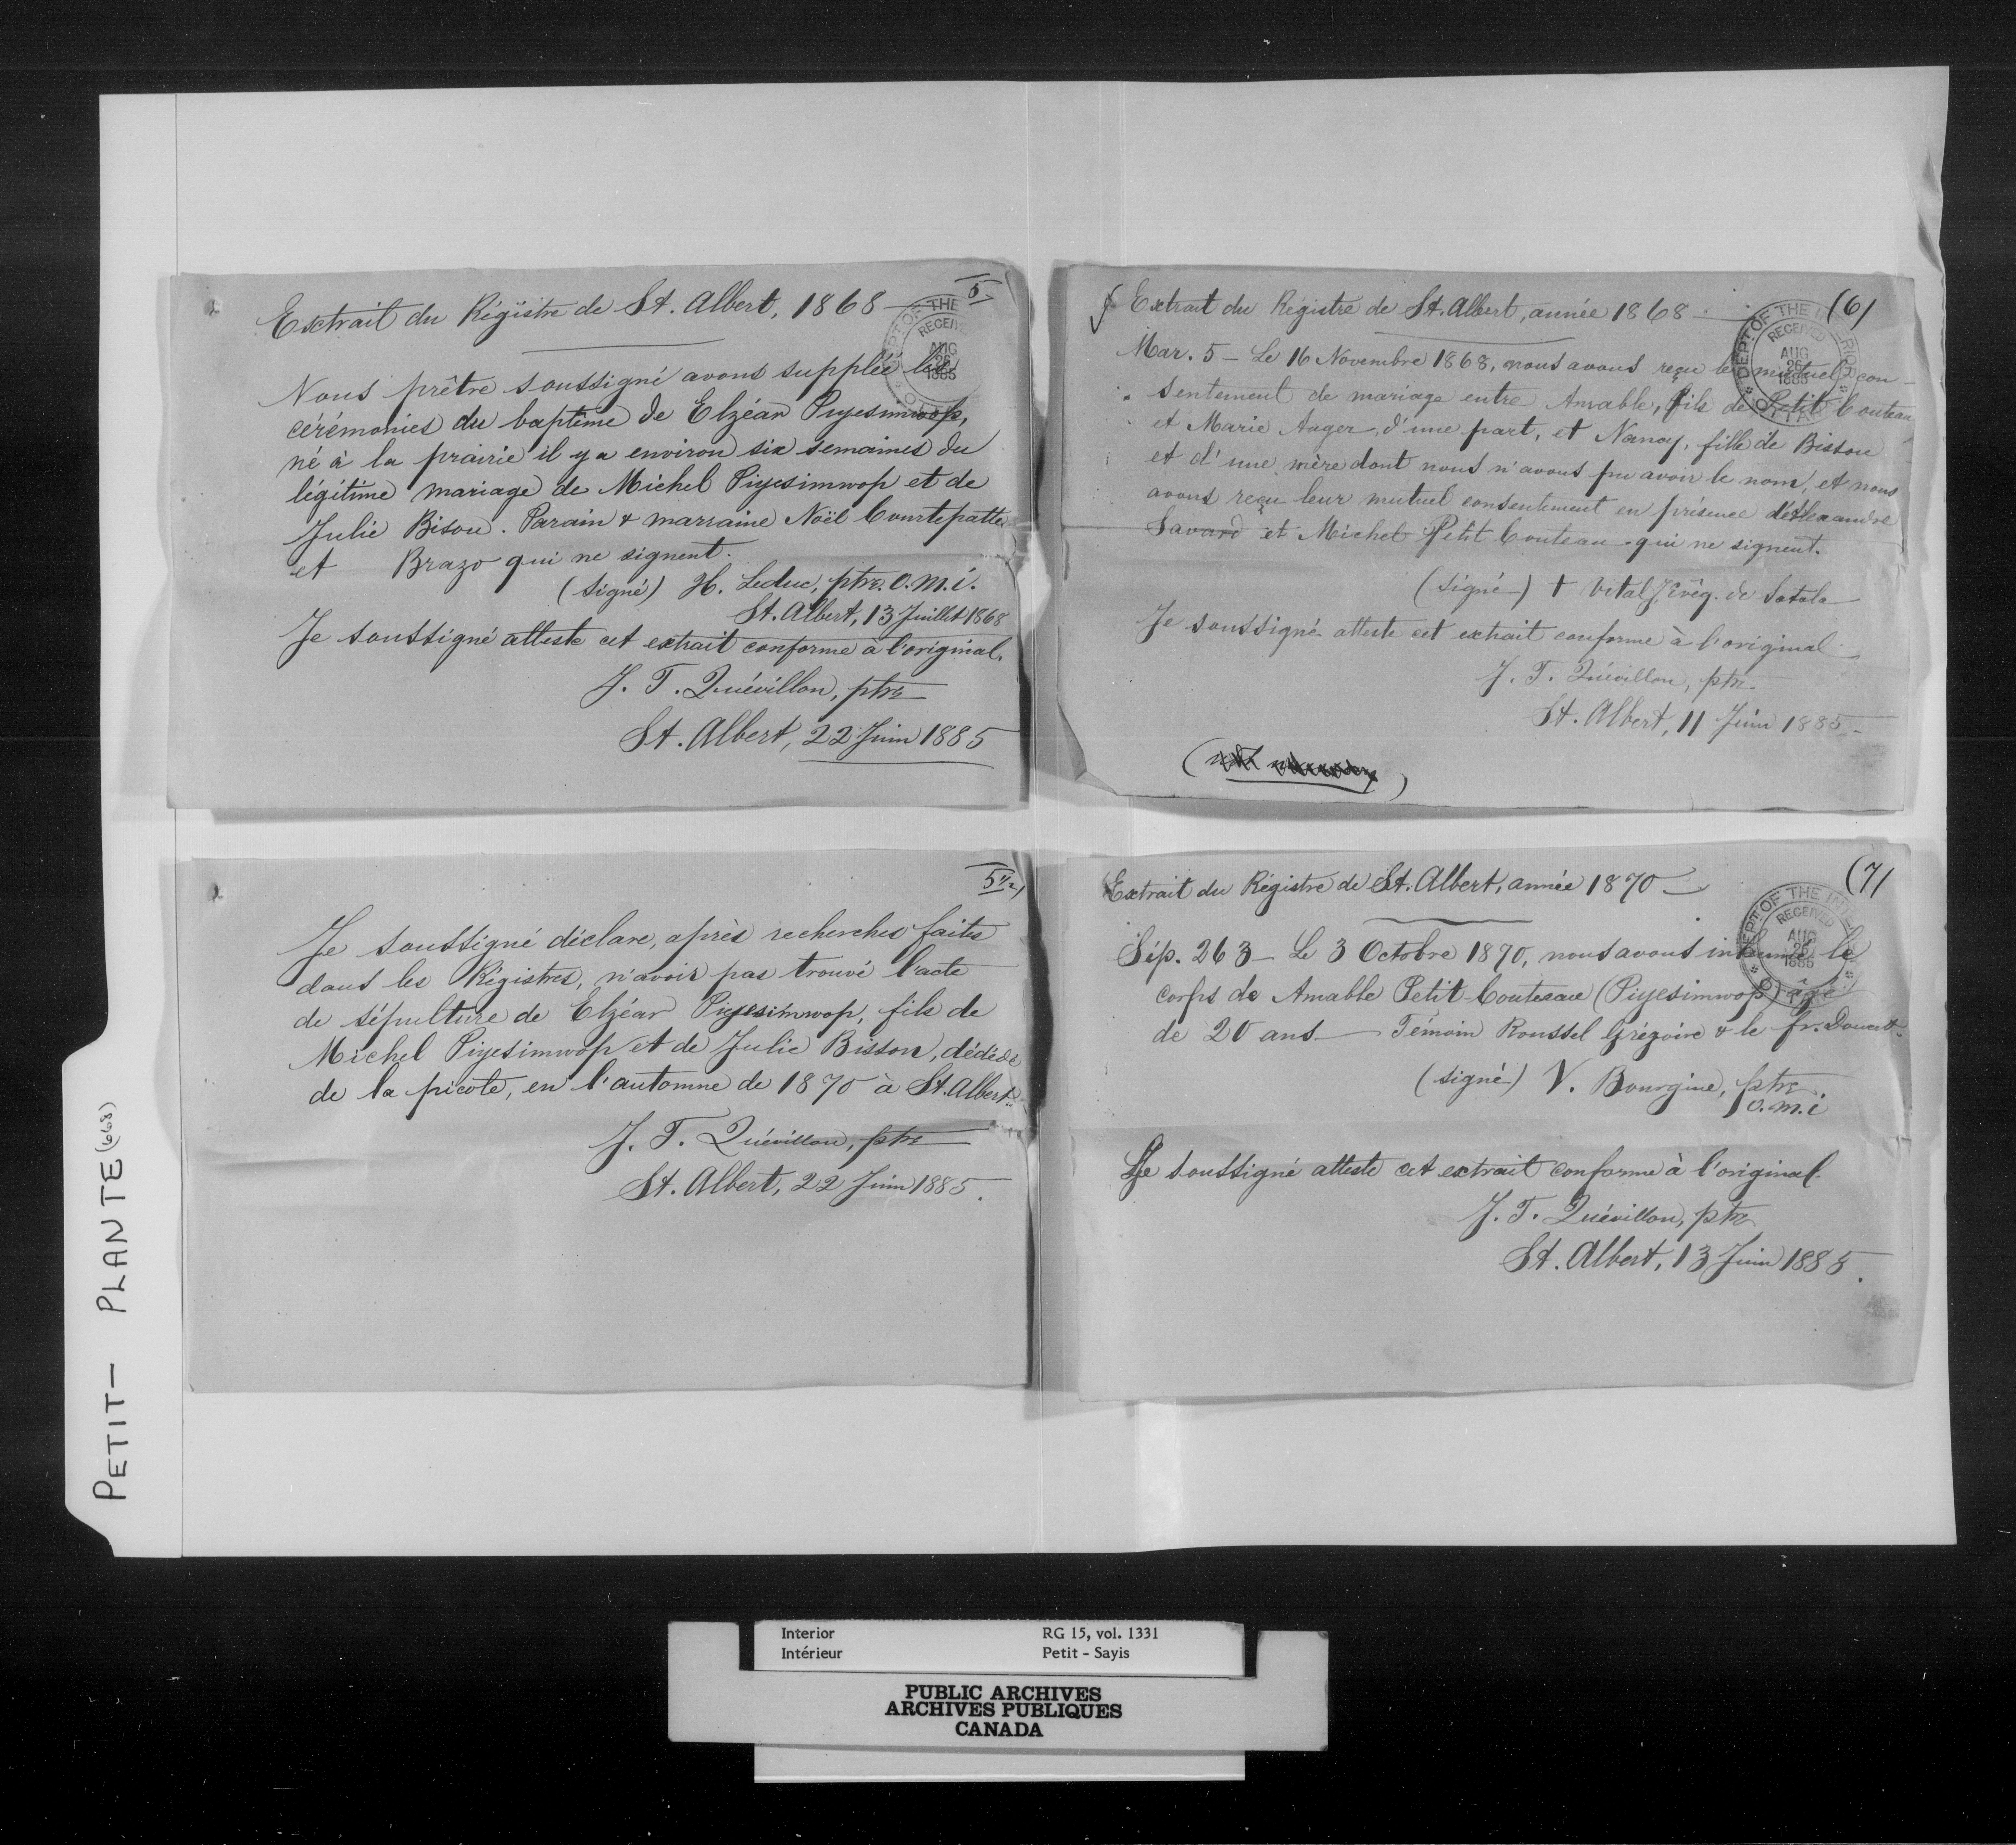 5
Extrait du Régistre de St. Albert, 1868
DEPT. OF THE
RECEIV
AUG
26
1885
Nous prêtre soussigné avons suppléé les
cérémonies du baptême de Elzéar Piyesimwop,
né à la prairie il y a environ six semaines du
légitime mariage de Michel Piyesimwop et de
Julie Bisou. Parain & marraine Noël Courtepatte
et Brazo qui ne signent.
(signé) H. Leduc, ptre. O.M.I.
St. Albert, 13 Juillet 1868
Je soussigné atteste cet extrait conforme à l'original.
J. T. Quévillon, ptre
St. Albert, 22 Juin 1885
(6)
Extrait du Régistre de St. Albert, année 1868
DEPT. OF THE INTERIOR
RECEIVED
AUG
26
1885
Mar. 5 - Le 16 Novembre 1868, nous avons reçu le mutuel con-
sentement de mariage entre Amable, fils de Petit Couteau
et Marie Auger, d'une part, et Nancy, fille de Bisson
et d'une mère dont nous n'avons pu avoir le nom, et nous
avons reçu leur mutuel consentement en présence d'Alexandre
Savard et Michel Petit Couteau qui ne signent.
(signé) + Vital J. Évêq. de Satala
Je soussigné atteste cet extrait conforme à l'original
J. T. Quévillon, ptre
St. Albert, 11 Juin 1885
5 1/2)
Je soussigné déclare, après recherches faites
dans les Régistres, n'avoir pas trouvé l'acte
de sépulture de Elzéar Piyesimwop, fils de
Michel Piyesimwop et de Julie Bisson, dédédé
de la picote, en l'automne de 1870 à St. Albert.
J. T. Quévillon, ptre
St. Albert, 22 Juin 1885.
(7)
Extrait du Régistre de St. Albert, année 1870
DEPT. OF THE INTE
RECEIVED
AUG
26
1885
Sép. 263 - Le 3 Octobre 1870, nous avons inhumé le
corps de Amable Petit-Couteau (Piyesimwop) âgé
de 20 ans - Témoin Roussel Grégoire & le fr. Doucet
(signé) V. Bourgine, ptre.
o.m.i
Je soussigné atteste cet extrait conforme à l'original.
J. T. Quévillon, ptre
St. Albert, 13 Juin 1885.
PETIT - PLANTE (668)
Interior RG 15, vol. 1331
Intérieur Petit - Sayis
PUBLIC ARCHIVES
ARCHIVES PUBLIQUES
CANADA